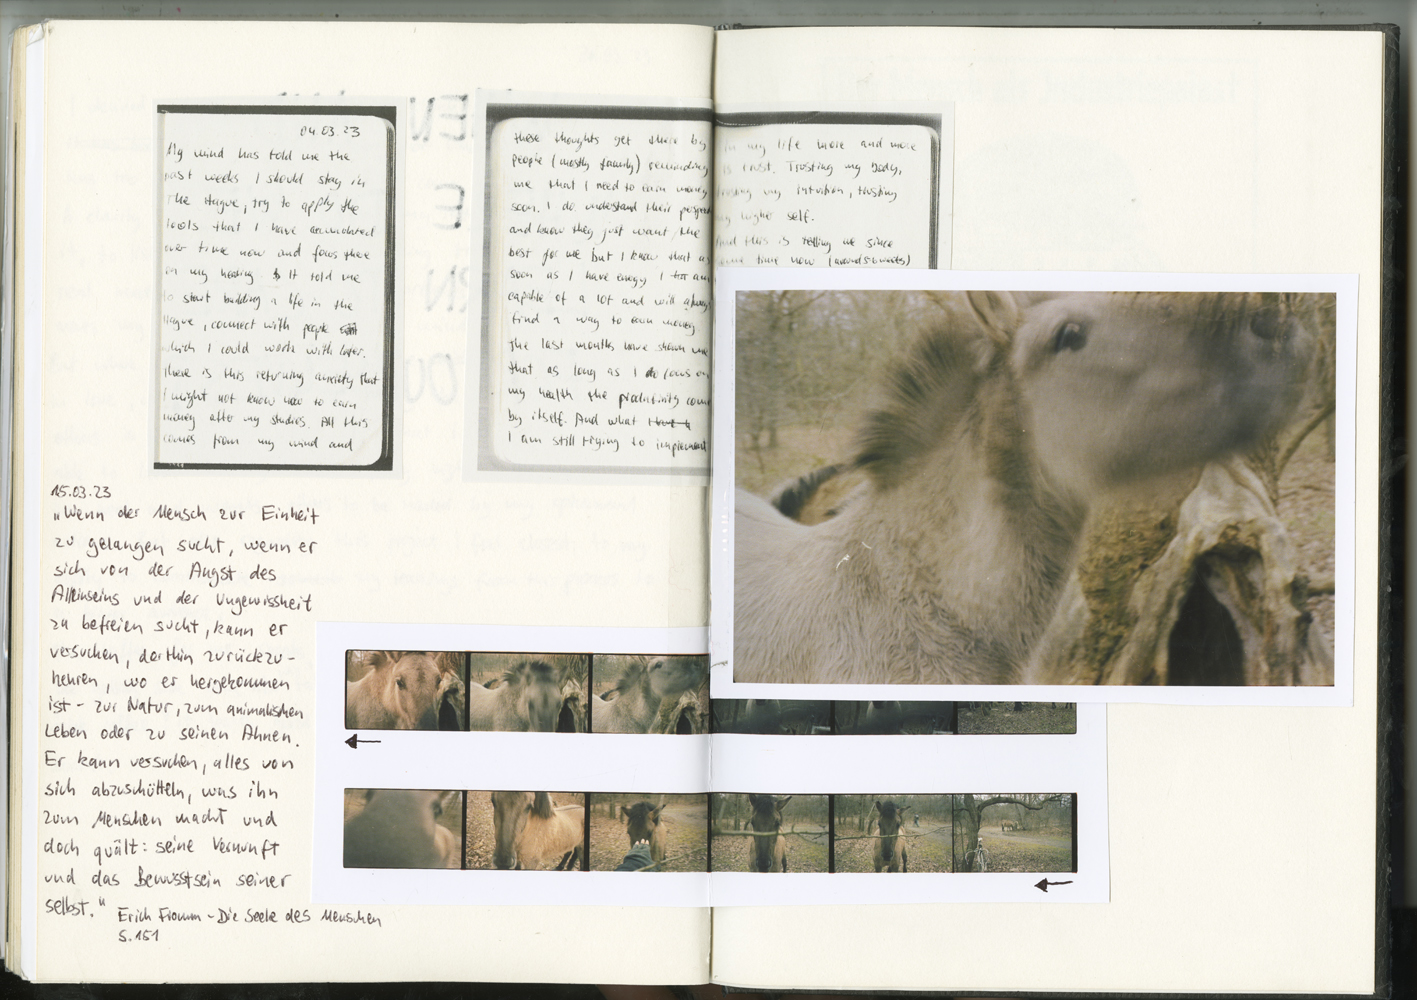 04.03.23
My mind has told me the
past weeks I should stay in
The Hague, try to apply the
tools that I have accumulated
over time now and focus there
on my healing. It told me
to start building a life in the
Hague, connect with people
which I could work with later.
There is this returning anxiety that
I might not know how to earn
money after my studies. All this
comes from my mind and
these thoughts get there by
people (mostly family) reminding
me that I need to earn money
soon. I do understand their
and know they just want the
best for me but I know that as
soon as I have energy I am
capable of a lot and will always
find a way to earn money
The last months have shown me
that as long as I do focus on
my health the produtivity come
by itself. And what
I am still trying to implement
in my life more and more
is trust. Trusting my body,
trusting my intuition, trusting
my higher self.
And this is telling me since
some time now (around 3 weeks)
15.03.23
„Wenn der Mensch zur Einheit
zu gelangen sucht, wenn er
sich von der Angst des
Alleinseins und der Ungewissheit
zu befreien sucht, kann er
versuchen, dorthin zurückzu-
kehren, wo er hergekommen
ist - zur Natur, zum animalischen
Leben oder zu seinen Ahnen.
Er kann versuchen, alles von
sich abzuschütteln, was ihn
zum Menschen macht und
doch quält: seine Vernunft
und das Bewusstsein seiner
selbst."
Erich Fromm - Die Seele des Menschen
S. 151